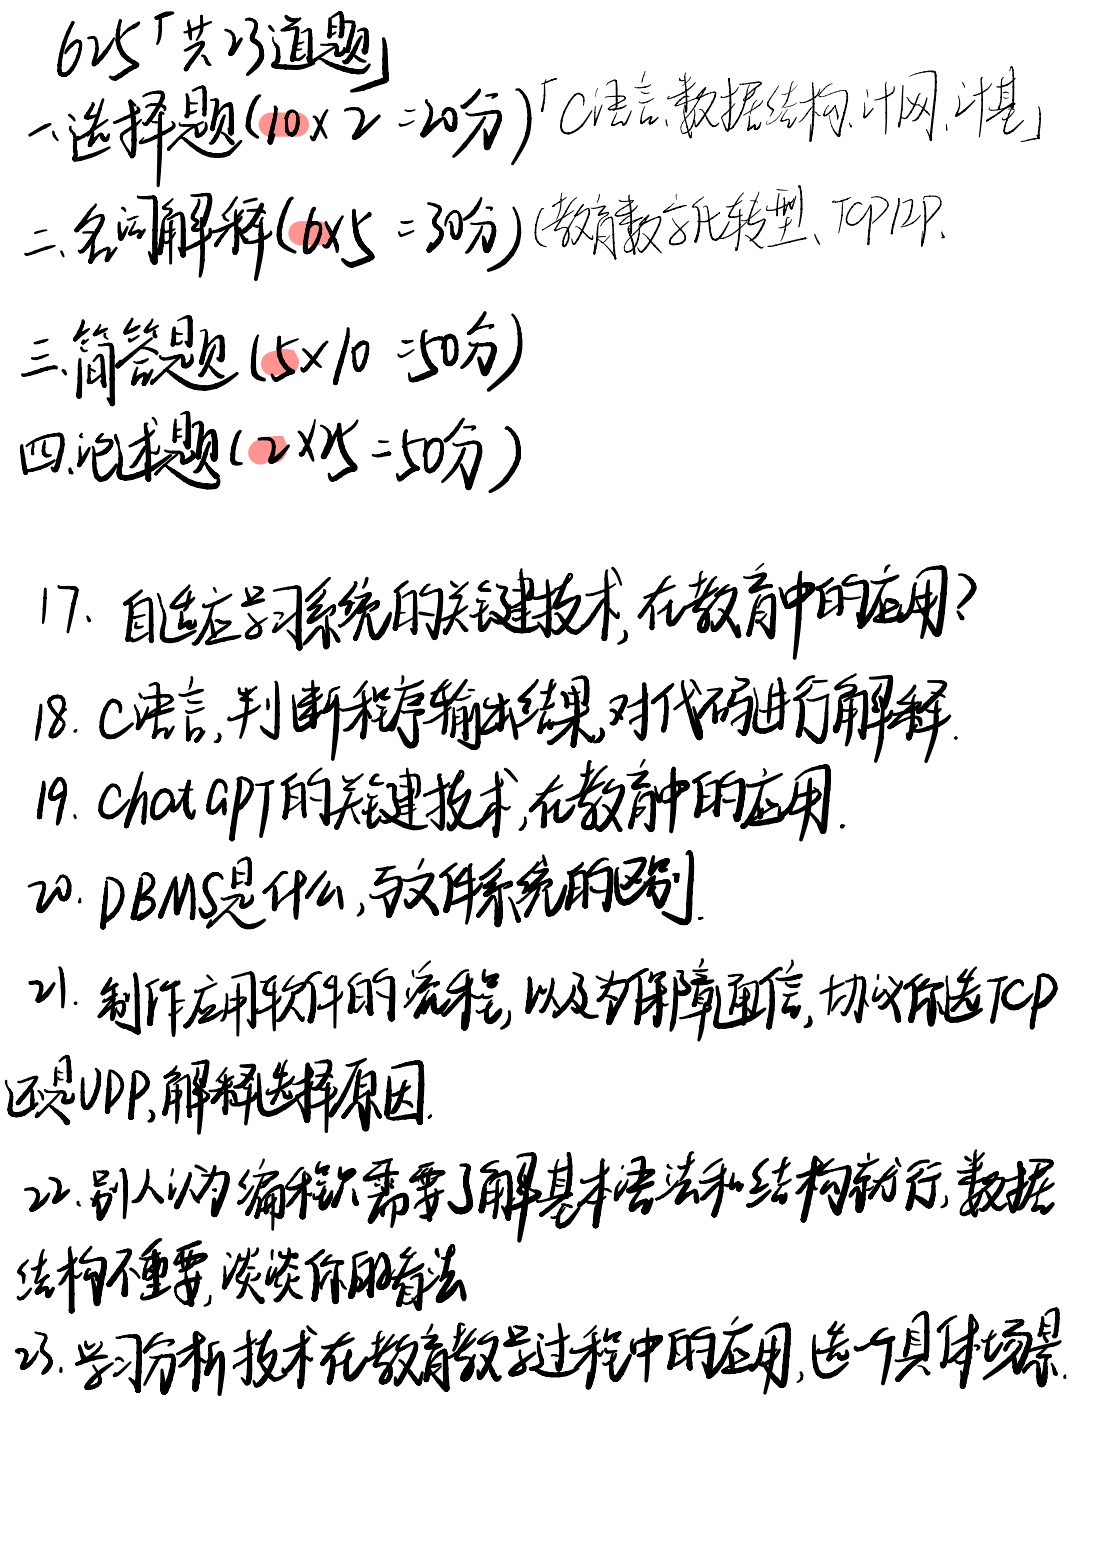 625「共23道题」
一、选择题(10×2=20分)「C语言、数据结构、计网、计基」
二、名词解释(6×5=30分)(教育数字化转型、TCP/IP、
三、简答题(5×10=50分)
四、论述题(2×25=50分)
17. 自适应学习系统的关键技术,在教育中的应用?
18. C语言,判断程序输出结果,对代码进行解释.
19. ChatGPT的关键技术,在教育中的应用.
20. DBMS是什么,与文件系统的区别.
21. 制作应用软件的流程,以及为保障通信,协议你选TCP
还是UDP,解释选择原因.
22. 别人认为编程只需要了解基本语法和结构就行,数据
结构不重要,谈谈你的看法
23. 学习分析技术在教育教学过程中的应用,选一个具体场景.